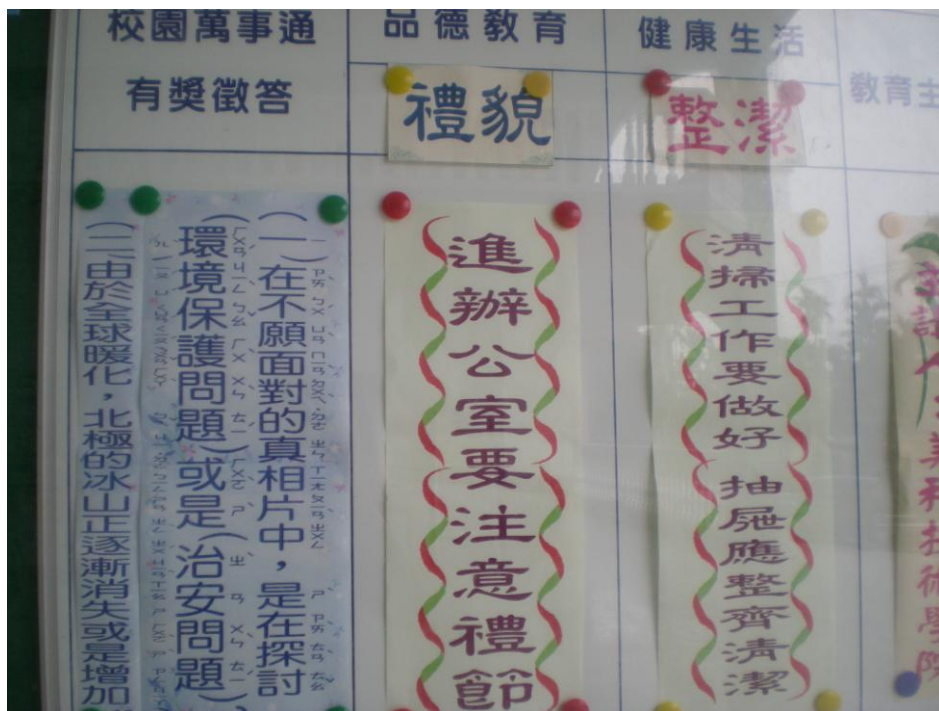 校園萬事通
有獎徵答
(一)在不願面對的真相片中，是在探討
(環境保護問題)或是(治安問題)
(二)由於全球暖化，北極的冰山正逐漸消失或是增加
品德教育
禮貌
進辦公室要注意禮節
健康生活
整潔
清掃工作要做好 抽屜應整齊清潔
教育主
美和技術學院